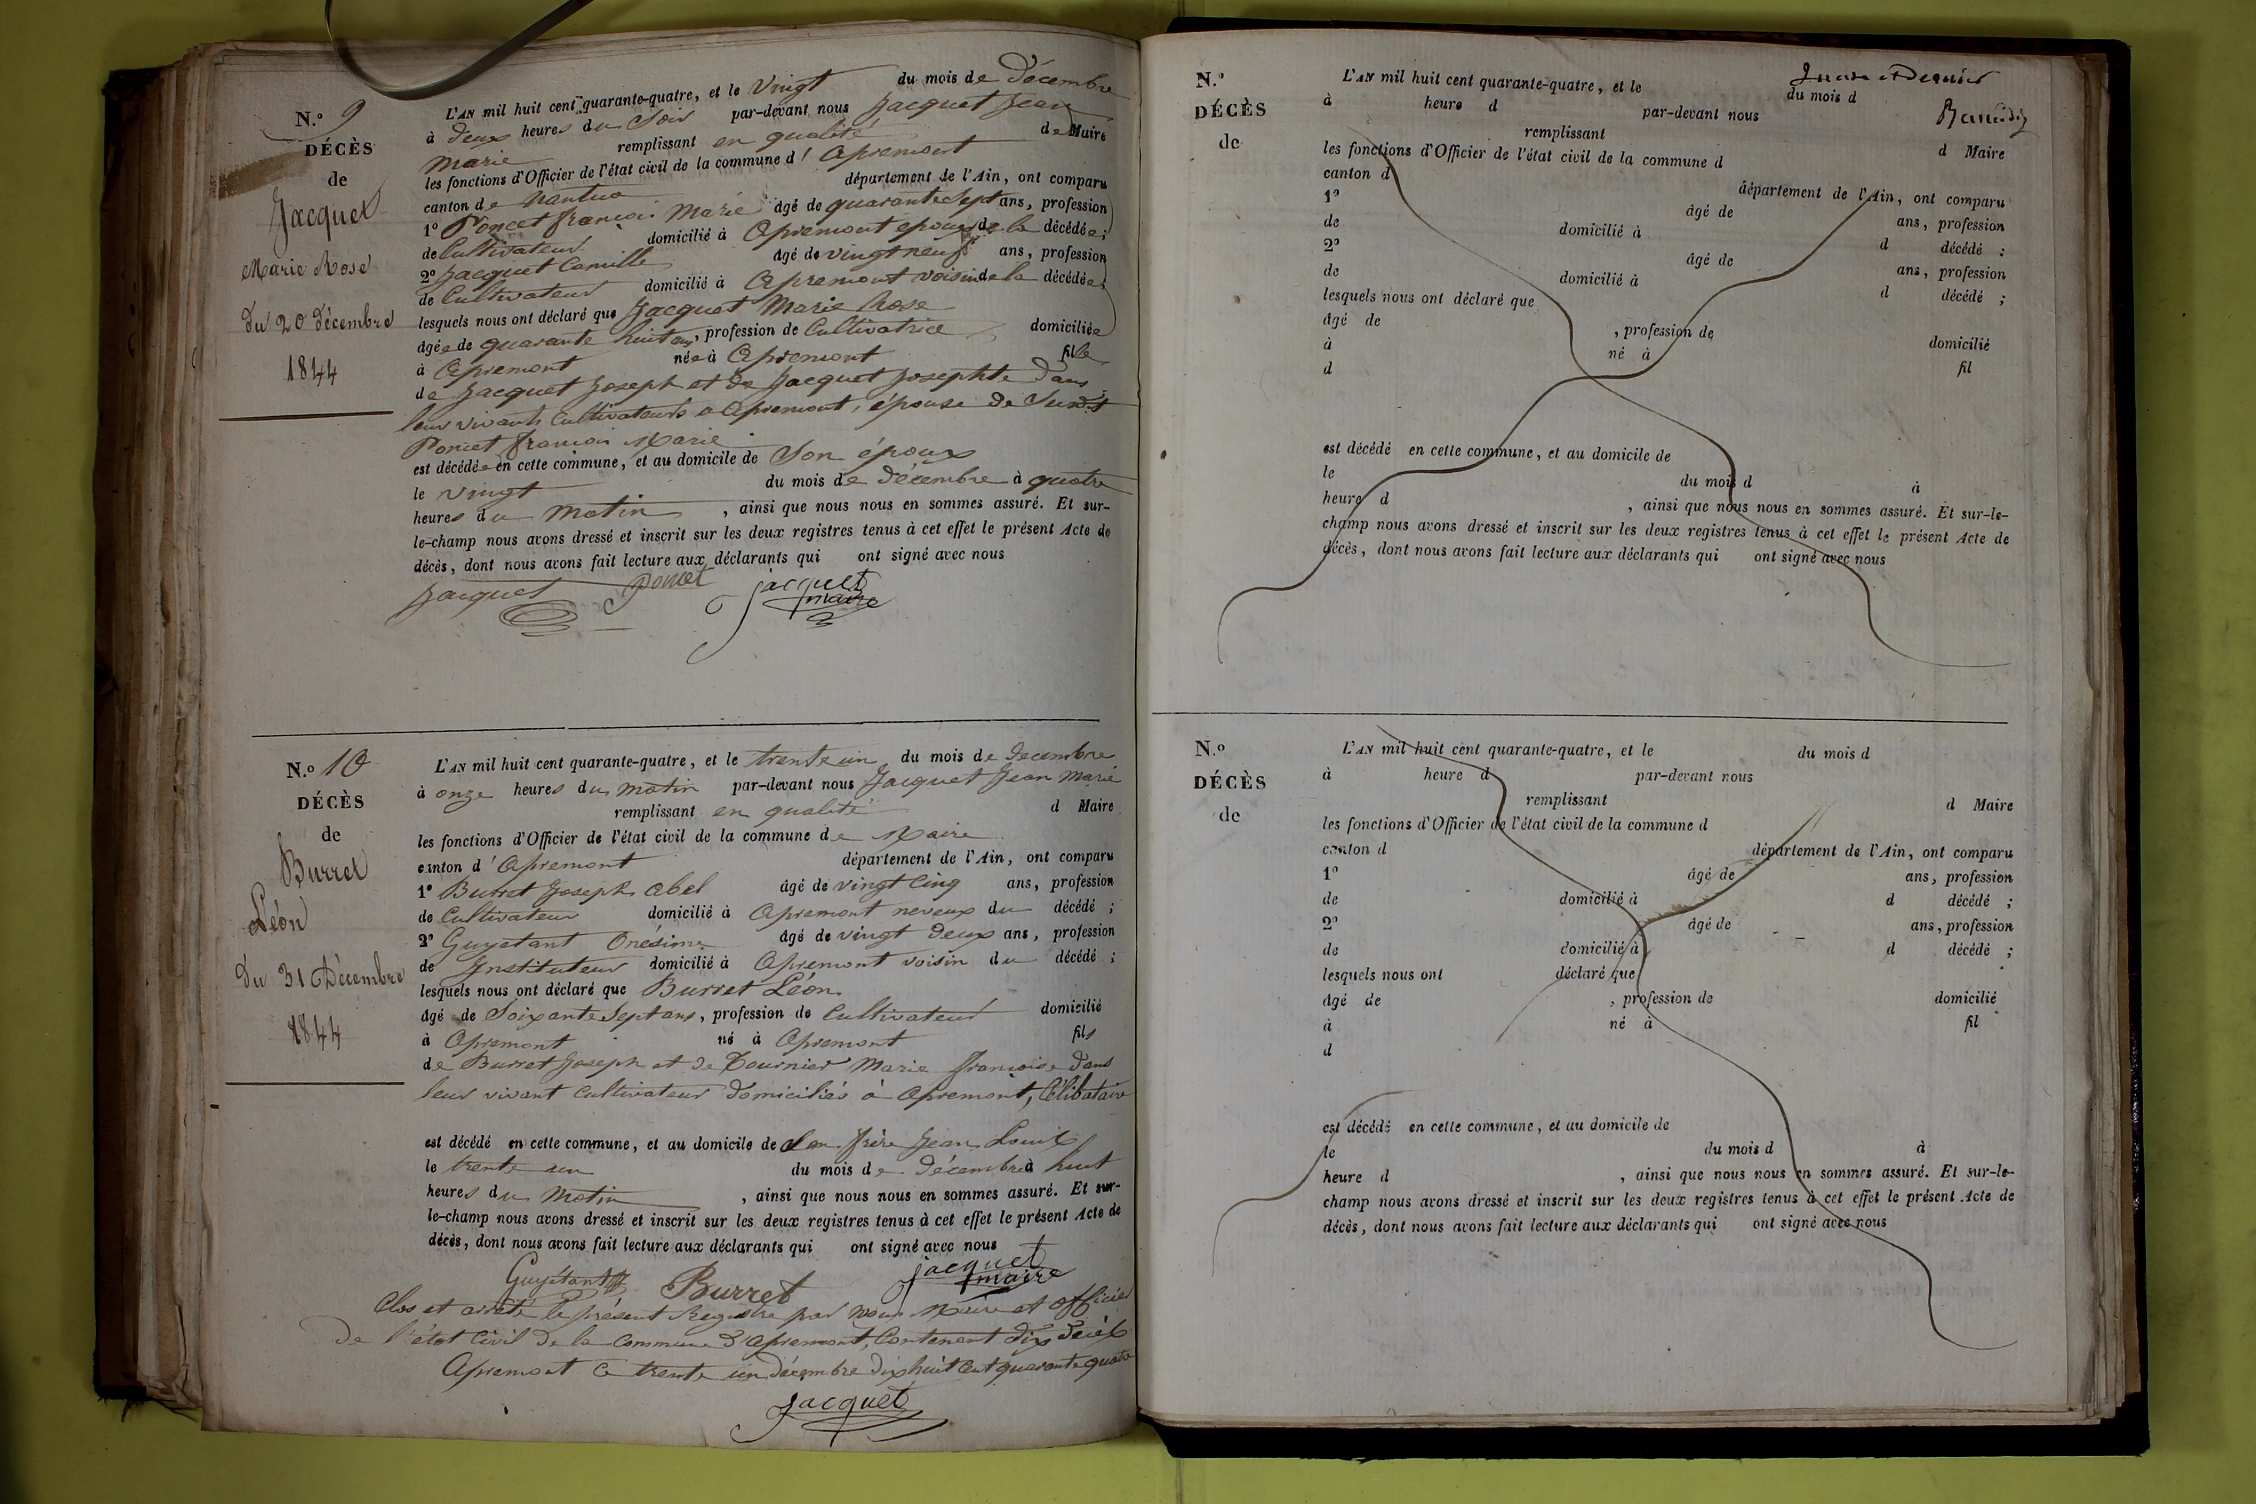 N.º 9
DÉCÈS
de
Jacquet
Marie Rose
du 20 décembre
1844
L'AN mil huit cent quarante-quatre, et le Vingt du mois de Décembre
à deux heures du Soir par-devant nous Jacquet Jean
Marie remplissant en qualité de Maire
les fonctions d'Officier de l'état civil de la commune d'Apremont
canton de Nantua département de l'Ain, ont comparu
1º Poncet françois Marie âgé de quarante Sept ans, profession
de Cultivateur domicilié à Apremont epoux de la décédée;
2º Jacquet Camille âgé de vingt neuf ans, profession
de Cultivateur domicilié à Apremont voisin de la décédée;
lesquels nous ont déclaré que Jacquet Marie Rose
âgée de quarante huit ans, profession de Cultivatrice domiciliée
à Apremont née à Apremont fille
de Jacquet Joseph et de Jacquet Josephte dans
leur vivants Cultivateurs a Apremont, épouse de
Poncet françois Marie
est décédée en cette commune, et au domicile de Son époux
le Vingt du mois de décembre à quatre
heures du Matin, ainsi que nous nous en sommes assuré. Et sur-
le-champ nous avons dressé et inscrit sur les deux registres tenus à cet effet le présent Acte de
décès, dont nous avons fait lecture aux déclarants qui ont signé avec nous
Jacquet Poncet jacquet
maire
N.º 10
DÉCÈS
de
Burret
Léon
du 31 Décembre
1844
L'AN mil huit cent quarante-quatre, et le trente un du mois de decembre
à onze heures du matin par-devant nous Jacquet Jean Marie
remplissant en qualité d Maire
les fonctions d'Officier de l'état civil de la commune de Maire
canton d'Apremont département de l'Ain, ont comparu
1º Burret Joseph Abel âgé de vingt Cinq ans, profession
de Cultivateur domicilié à Apremont neveux du décédé;
2º Guyetant Onésime âgé de vingt deux ans, profession
de Instituteur domicilié à Apremont voisin du décédé;
lesquels nous ont déclaré que Burret Léon
âgé de Soixante Sept ans, profession de Cultivateur domicilié
à Apremont né à Apremont fils
de Burret Joseph et de Tournier Marie françoise dans
leur vivant Cultivateur domiciliés à Apremont, Célibataire
est décédé en cette commune, et au domicile de Son frère Jean Louis
le trente un du mois de décembre à huit
heures du Matin, ainsi que nous nous en sommes assuré. Et sur-
le-champ nous avons dressé et inscrit sur les deux registres tenus à cet effet le présent Acte de
décès, dont nous avons fait lecture aux déclarants qui ont signé avec nous
Guyétant Burret jacquet
maire
Clos et arrêté le présent Registre par Nous Maire et officier
de l'état Civil de la Commune d'Apremont, Contenant dix décès
Apremont ce trente un décembre dix huit Cent quarante quatre
jacquet
N.º
DÉCÈS
de
L'AN mil huit cent quarante-quatre, et le du mois d
à heure d par-devant nous
remplissant d Maire
les fonctions d'Officier de l'état civil de la commune d
canton d département de l'Ain, ont comparu
1º âgé de ans, profession
de domicilié à d décédé;
2º âgé de ans, profession
de domicilié à d décédé;
lesquels nous ont déclaré que
âgé de, profession de domicilié
à né à fil
d
est décédé en cette commune, et au domicile de
le du mois d à
heure d, ainsi que nous nous en sommes assuré. Et sur-le-
champ nous avons dressé et inscrit sur les deux registres tenus à cet effet le présent Acte de
décès, dont nous avons fait lecture aux déclarants qui ont signé avec nous
N.º
DÉCÈS
de
L'AN mil huit cent quarante-quatre, et le du mois d
à heure d par-devant nous
remplissant d Maire
les fonctions d'Officier de l'état civil de la commune d
canton d département de l'Ain, ont comparu
1º âgé de ans, profession
de domicilié à d décédé;
2º âgé de ans, profession
de domicilié à d décédé;
lesquels nous ont déclaré que
âgé de, profession de domicilié
à né à fil
d
est décédé en cette commune, et au domicile de
le du mois d à
heure d, ainsi que nous nous en sommes assuré. Et sur-le-
champ nous avons dressé et inscrit sur les deux registres tenus à cet effet le présent Acte de
décès, dont nous avons fait lecture aux déclarants qui ont signé avec nous